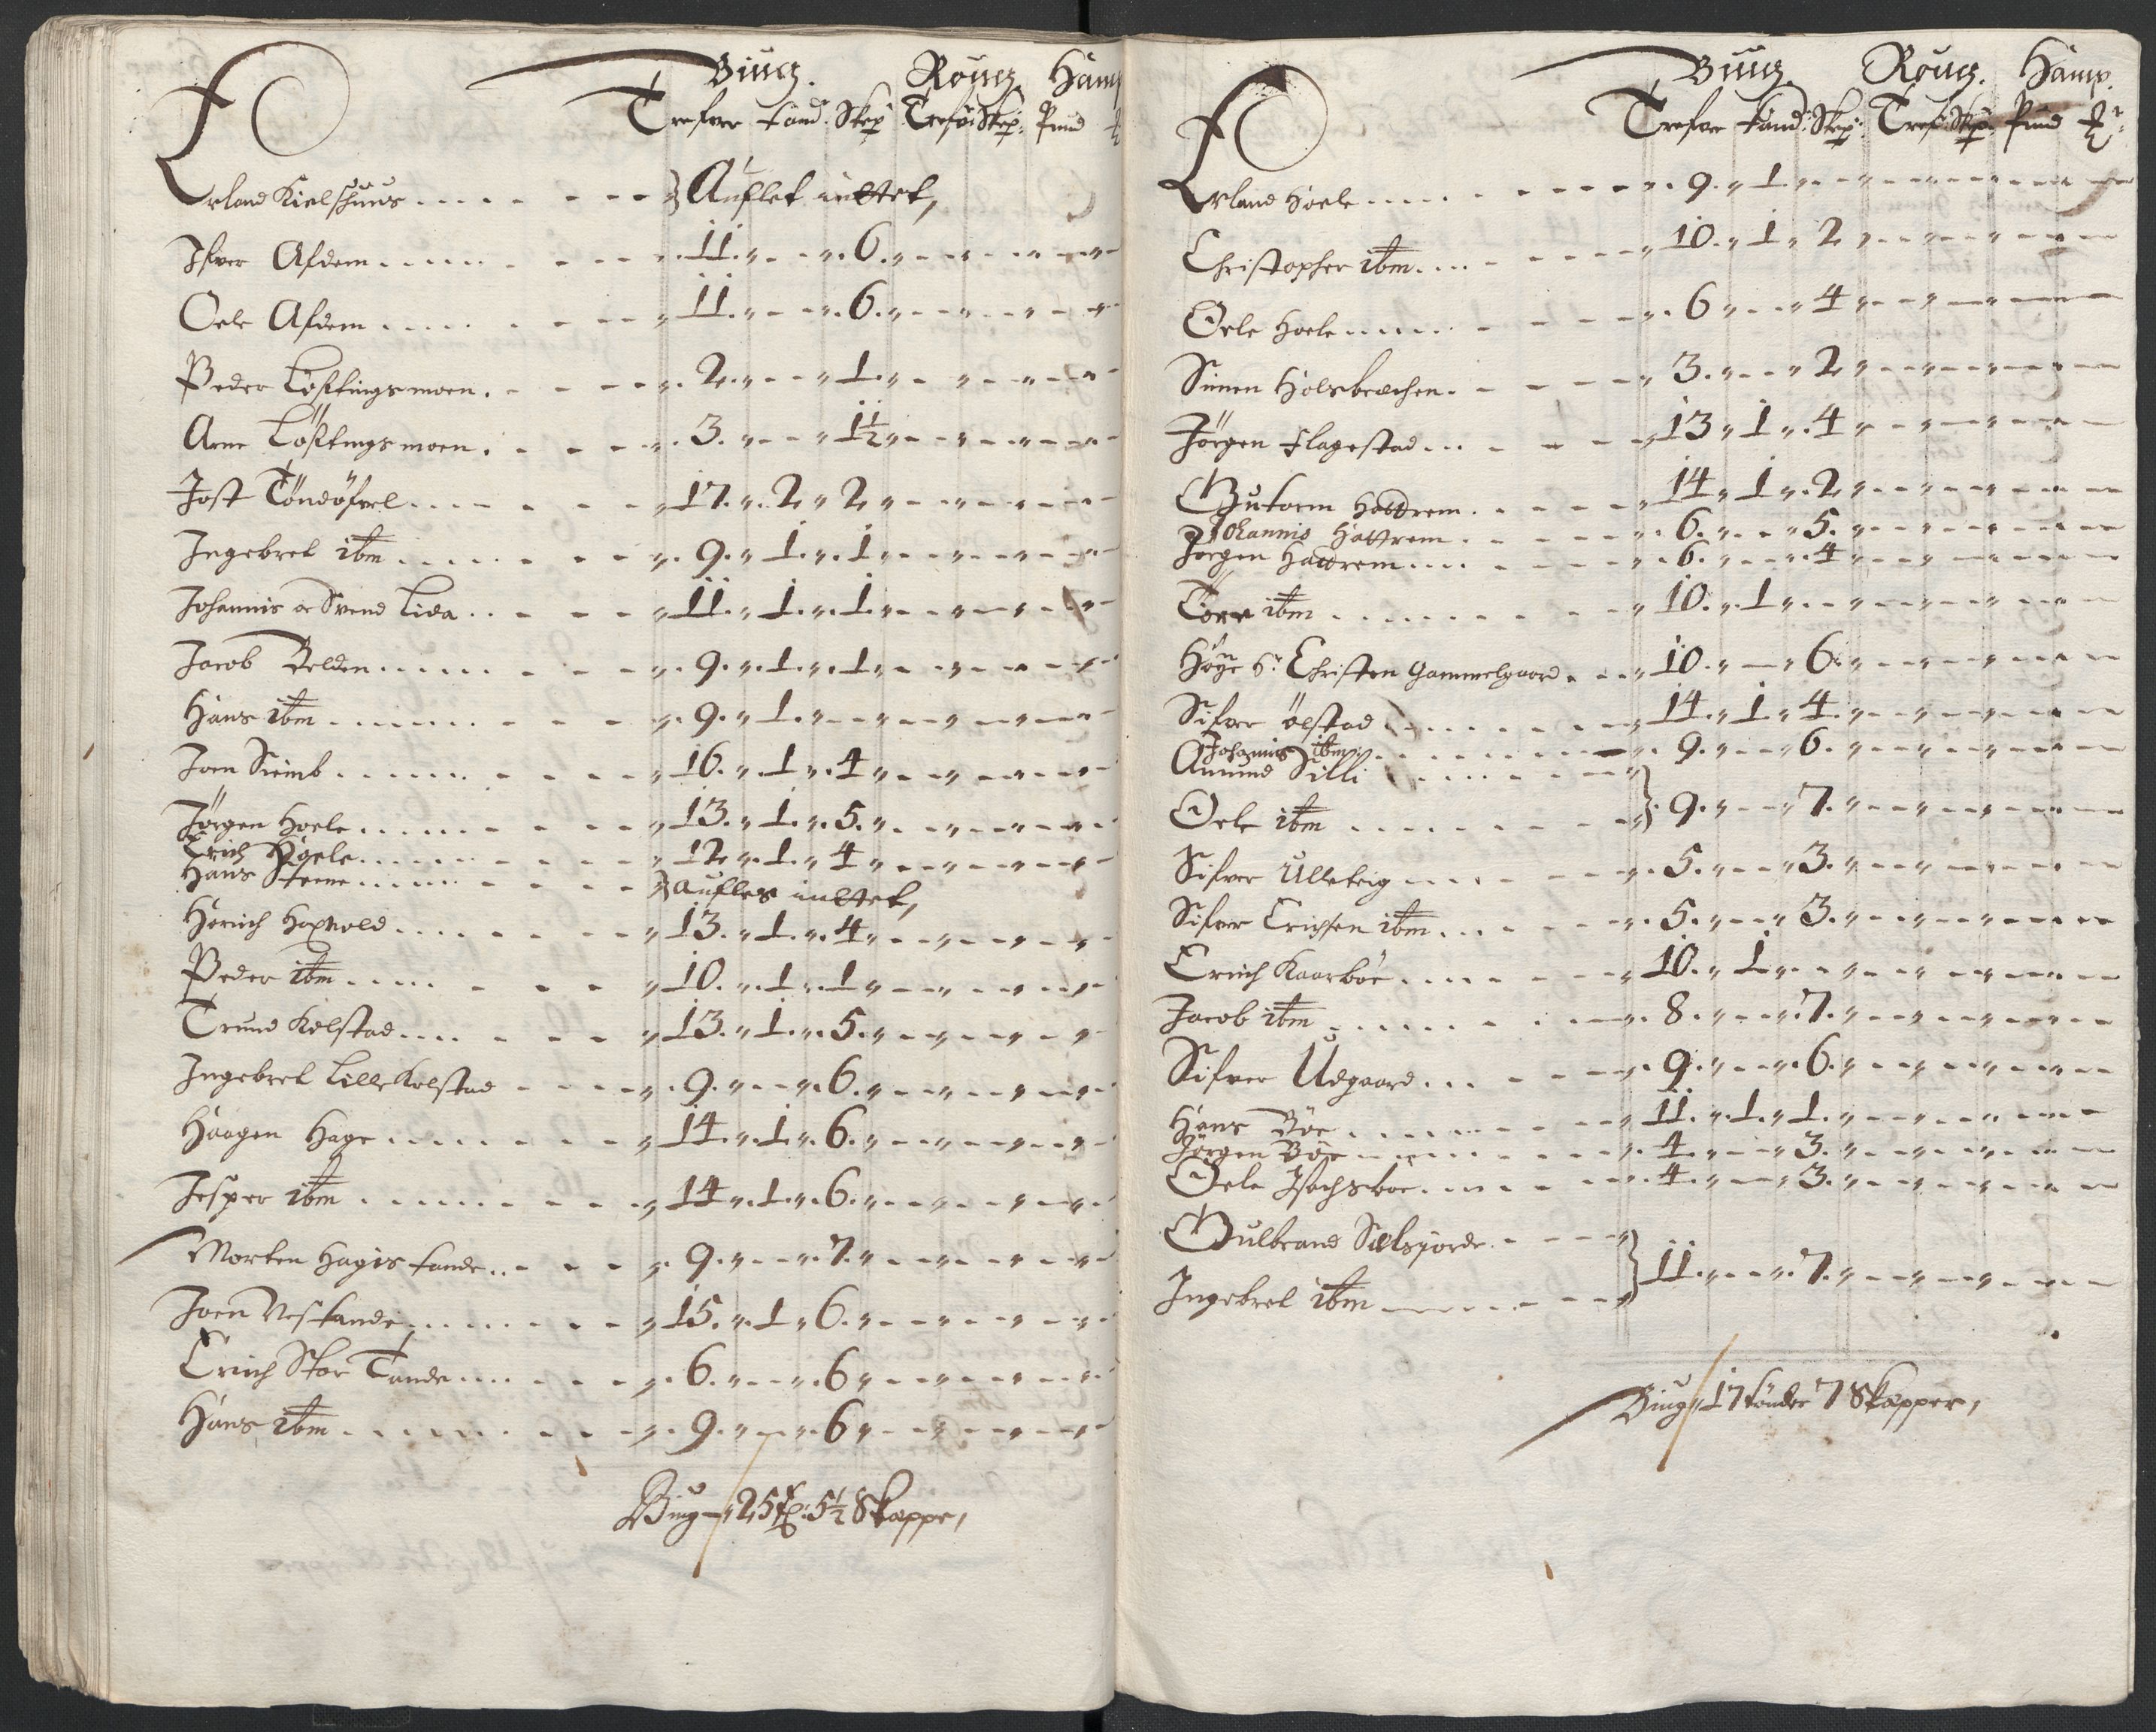 Biug. Roug Hamp
Trefver tønd: Skep Tref: Skep: Pund
Erland Kielschuus . . . . . Auflet inttet,
Ifver Afdem . . . . . 11. 6.
Oele Afdem . . . . . 11. 6.
Peder Løstingsmoen . . . 2. 1.
Arne Løstingsmoen . . . 3. 1½
Jost Tøndøfvel . . . . 17. 2 2
Ingebret ibm . . . . . 9. 1. 1
Johannis oc Svend Lida . . . 11. 1. 1.
Jacob Belden . . . . . 9. 1. 1.
Hans ibm . . . . . 9. 1.
Joen Siemb . . . . . 16. 1. 4
Jørgen Hoele . . . . . 13. 1. 5.
Erich Hoele . . . . . 12. 1. 4
Hans Steene . . . . . aufles inttet,
Herich Hoxvold . . . . 13. 1. 4
Peder ibm . . . . . 10. 1. 1
Trund Kolstad . . . . 13. 1. 5.
Ingebret Lille Kolstad . . . 9. 6.
Haagen Hage . . . . . 14. 1. 6.
Jesper ibm . . . . . 14. 1. 6.
Morten Hagistande . . . 9. 7.
Joen Nestande . . . . . 15. 1. 6.
Erich Stor Tande . . . . 6. 6
Hans ibm . . . . . 9. 6
Biug 25 tr: 5½ Skeppe,
Biug Roug. Hamp.
Trefver tønd: Skep: Tref: Skep: Pund
Erland Hoele . . . . . 9. 1
Christopher ibm . . . . 10. 1 2
Oele Hoele . . . . . 6 4
Simen Holsbrechen . . . 3. 2
Jørgen Flagestad . . . 13 1. 4
Gutorm Hattrem . . . . 14 1. 2
Johannis Hattrem . . . . 6. 5.
Jørgen Hattrem . . . . 6. 4
Tore ibm . . . . . 10. 1
Høye Hr Christen Gammelgaard . . . 10. 6.
Sifver Ølstad . . . . . 14. 1. 4.
Johannis ibm . . . . . 9. 6.
Amund Silli . . . . .
Oele ibm . . . . . 9. 7.
Sifver Ulleteig . . . . 5. 3.
Sifver Erichsen ibm . . . 5. 3.
Erich Kaarbøe . . . . . 10. 1
Jacob ibm . . . . . 8. 7.
Sifver Udgaard . . . . 9. 6.
Hans Bøe . . . . . 11. 1. 1.
Jørgen Bøe . . . . . 4. 3.
Oele Isachsboe . . . . 4. 3.
Gulbrand Sielsjorde . . .
Ingebret ibm . . . . . 11. 7.
Biug 17 tønder 7 Skepper,